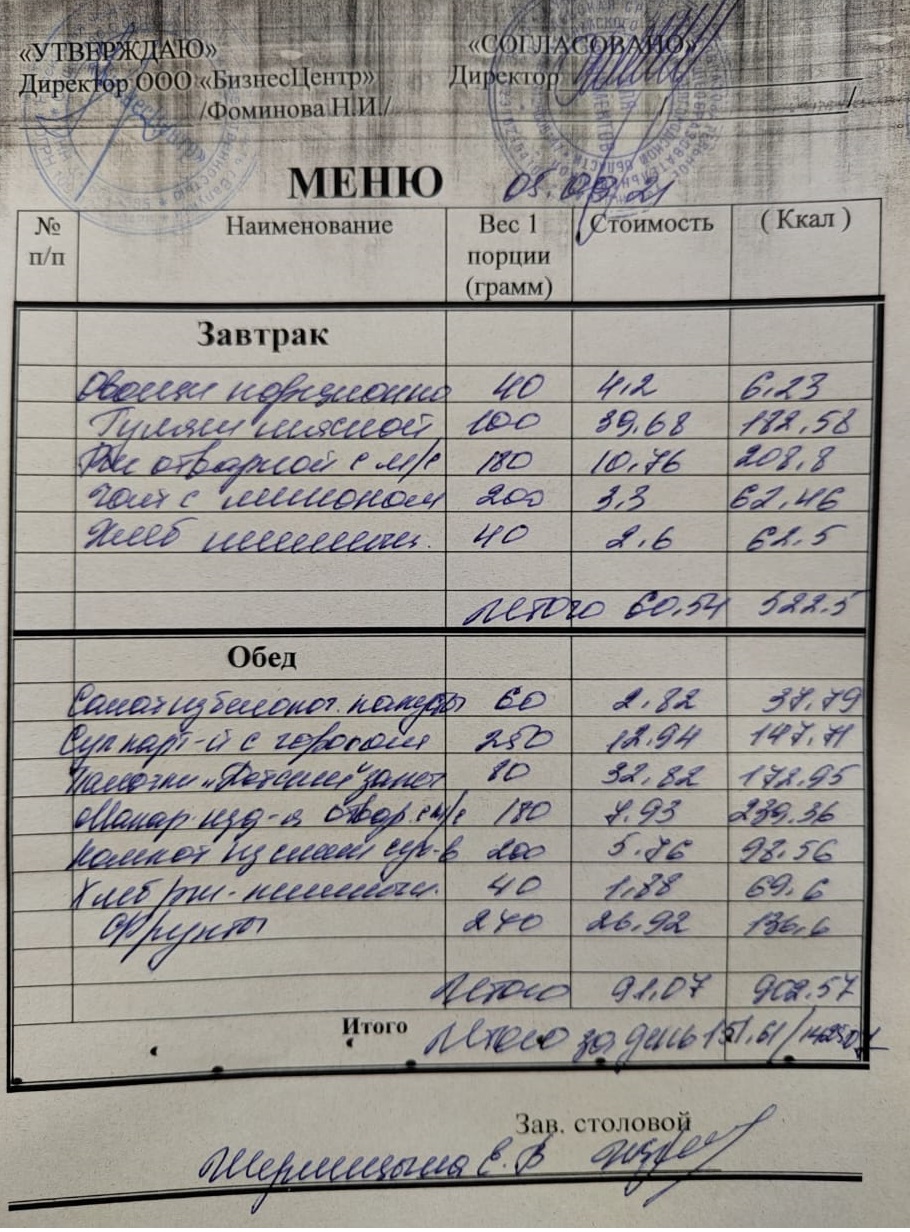 «УТВЕРЖДАЮ» «СОГЛАСОВАНО»
Директор ООО «БизнесЦентр» Директор
/Фоминова Н.И./ / /
МЕНЮ 05.03.21
№ п/п Наименование Вес 1 порции (грамм) Стоимость ( Ккал )
Завтрак
Овощи порционно 40 4.2 6.23
Гуляш мясной 100 39.68 182.58
Рис отварной с м/с 180 10.76 208.8
Чай с лимоном 200 3.3 62.46
Хлеб пшеничн. 40 2.6 62.5
Итого 60.54 522.5
Обед
Салат из белокоч. капусты 60 2.82 37.79
Суп карт-й с горохом 250 12.94 147.71
Палочки „Детские" запеч 80 32.82 172.95
Макар. изд-я отвар. с м/с 180 7.93 239.36
Компот из смеси сух-в 200 5.76 98.56
Хлеб рж-пшеничн. 40 1.88 69.6
Фрукты 240 26.92 136.6
Итого 91.07 902.57
Итого Итого за день 151.61 /
Зав. столовой
Е. В